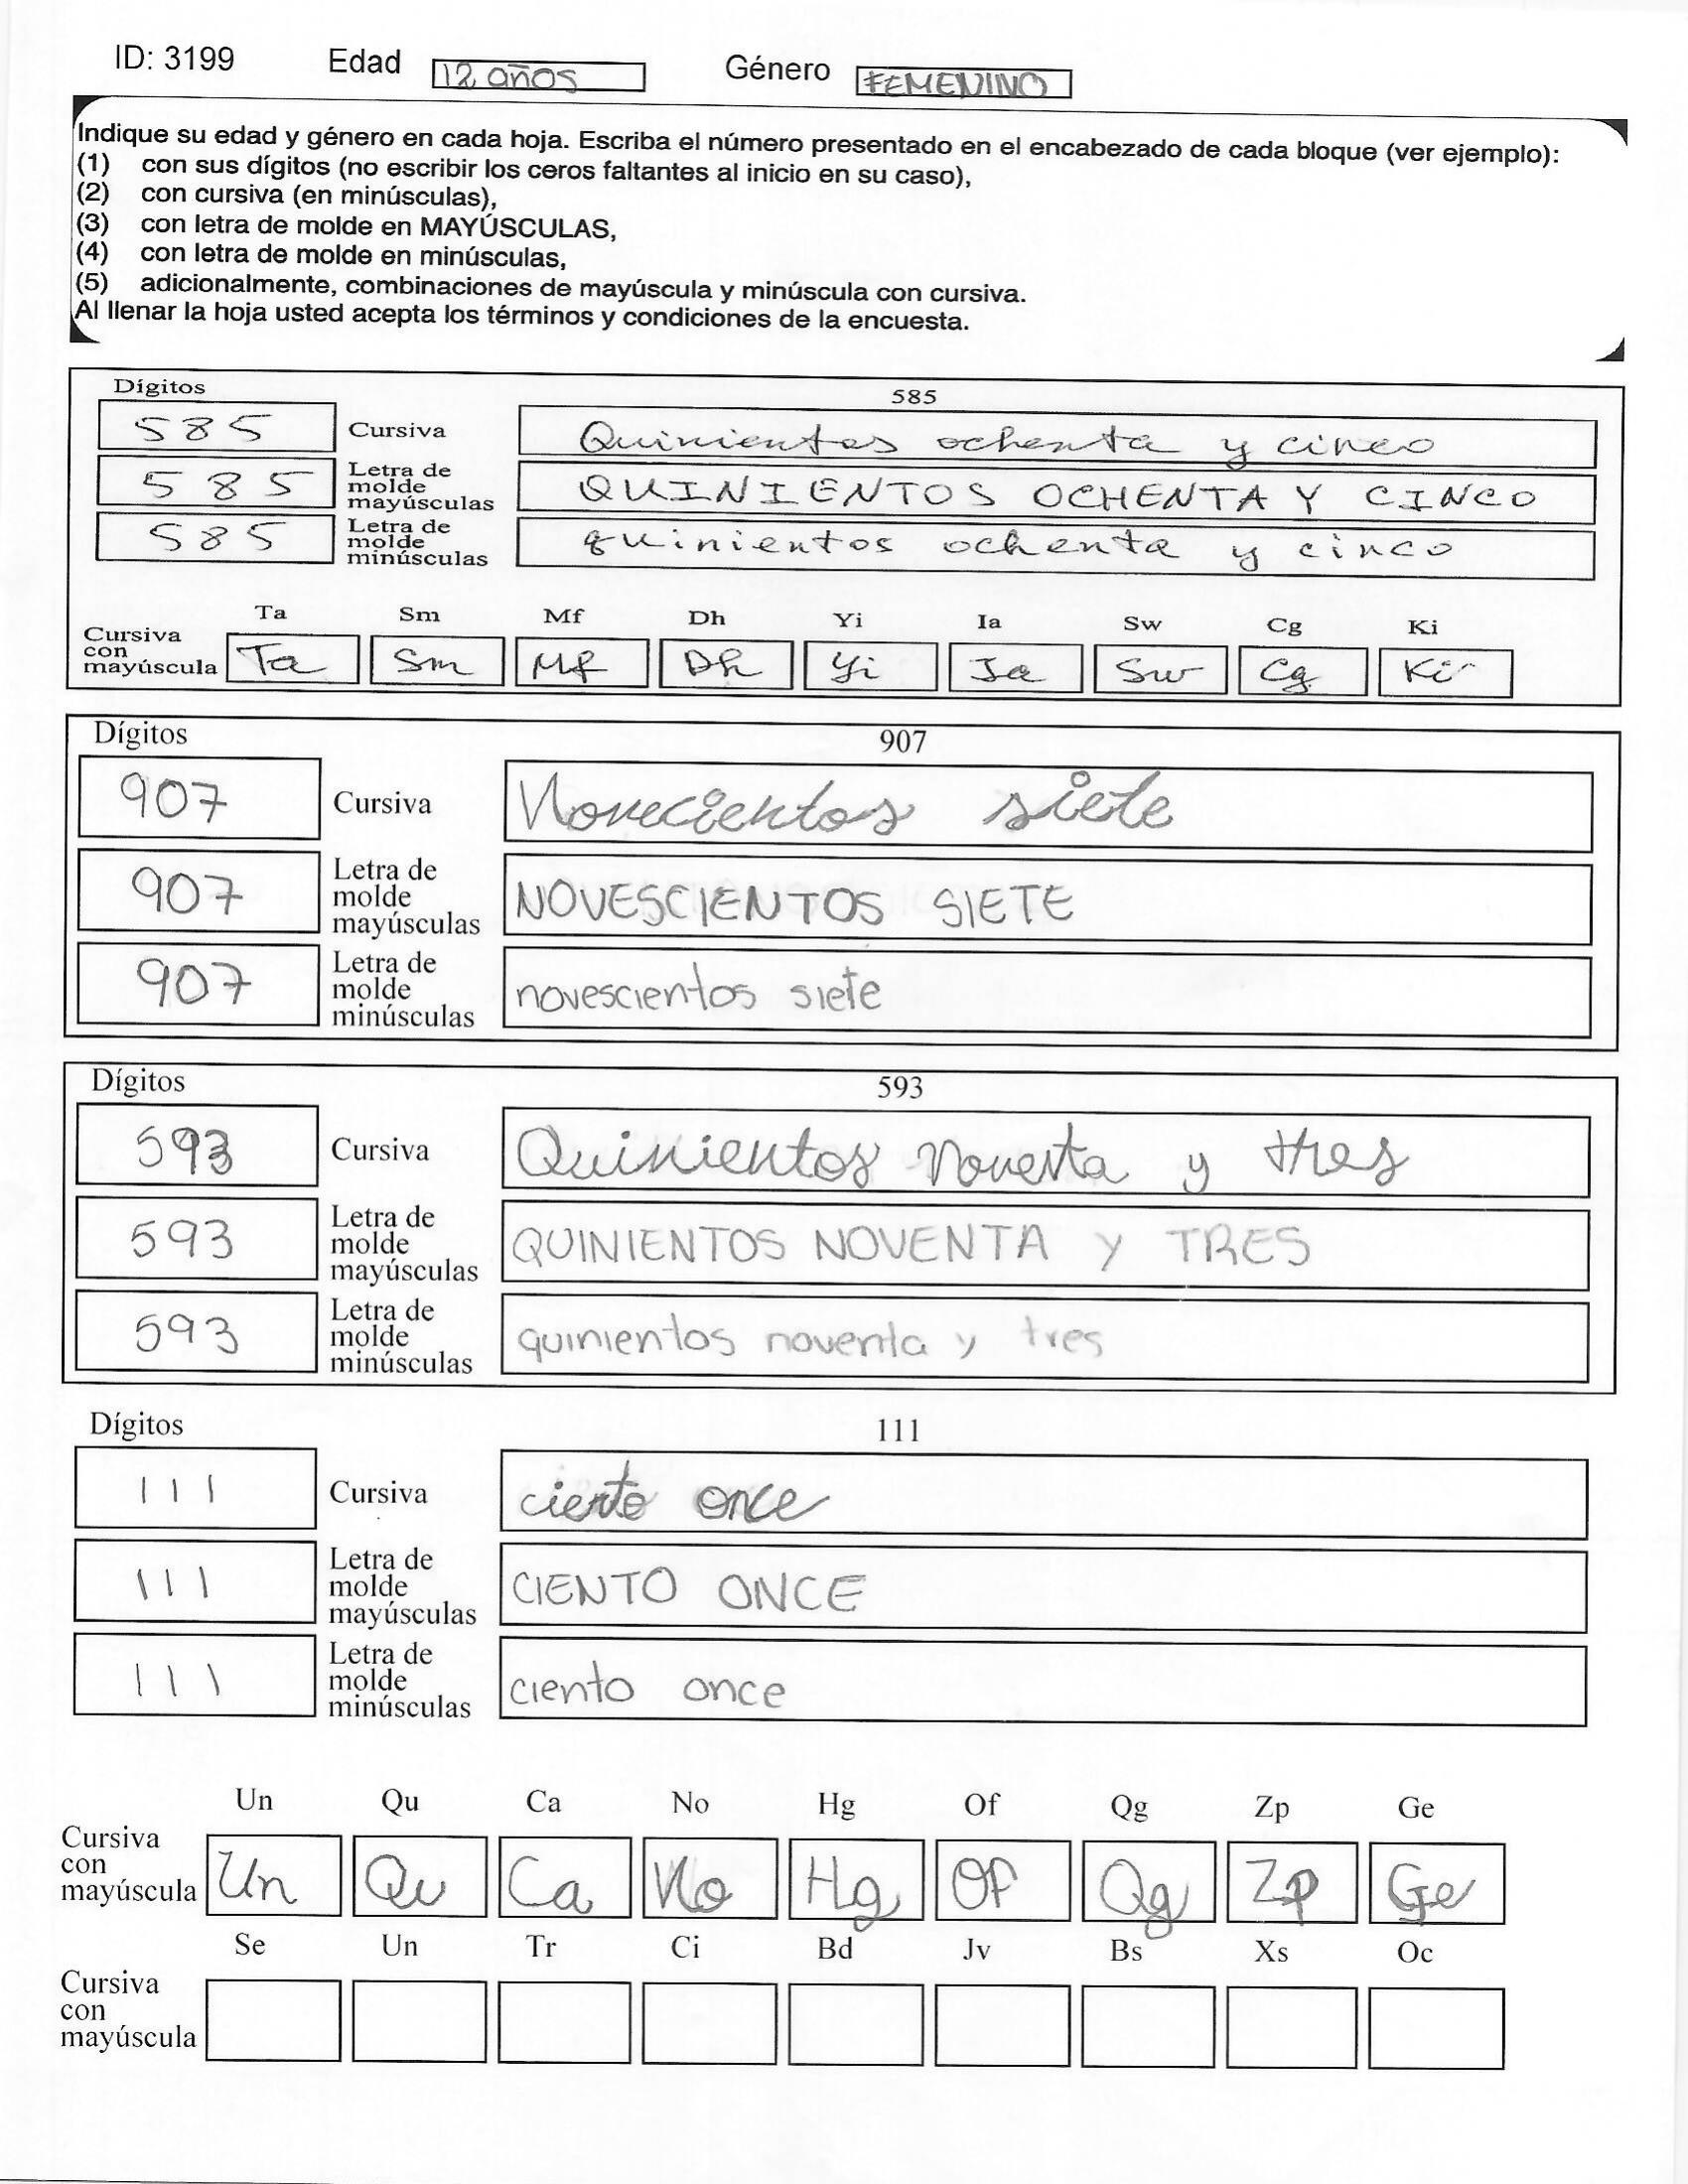 ID: 3199 Edad 12 años Género FEMENINO
Indique su edad y género en cada hoja. Escriba el número presentado en el encabezado de cada bloque (ver ejemplo):
(1) con sus dígitos (no escribir los ceros faltantes al inicio en su caso),
(2) con cursiva (en minúsculas),
(3) con letra de molde en MAYÚSCULAS,
(4) con letra de molde en minúsculas,
(5) adicionalmente, combinaciones de mayúscula y minúscula con cursiva.
Al llenar la hoja usted acepta los términos y condiciones de la encuesta.
Dígitos 585
585 Cursiva Quinientos ochenta y cinco
585 Letra de molde mayúsculas QUINIENTOS OCHENTA Y CINCO
585 Letra de molde minúsculas quinientos ochenta y cinco
Ta Sm Mf Dh Yi Ia Sw Cg Ki
Cursiva con mayúscula Ta Sm Mf Dh Yi Ia Sw Cg Ki
Dígitos 907
907 Cursiva Novecientos siete
907 Letra de molde mayúsculas NOVESCIENTOS SIETE
907 Letra de molde minúsculas novescientos siete
Dígitos 593
593 Cursiva Quinientos Noventa y tres
593 Letra de molde mayúsculas QUINIENTOS NOVENTA Y TRES
593 Letra de molde minúsculas quinientos noventa y tres
Dígitos 111
111 Cursiva ciento once
111 Letra de molde mayúsculas CIENTO ONCE
111 Letra de molde minúsculas ciento once
Un Qu Ca No Hg Of Qg Zp Ge
Cursiva con mayúscula Un Qu Ca No Hg Of Qg Zp Ge
Se Un Tr Ci Bd Jv Bs Xs Oc
Cursiva con mayúscula